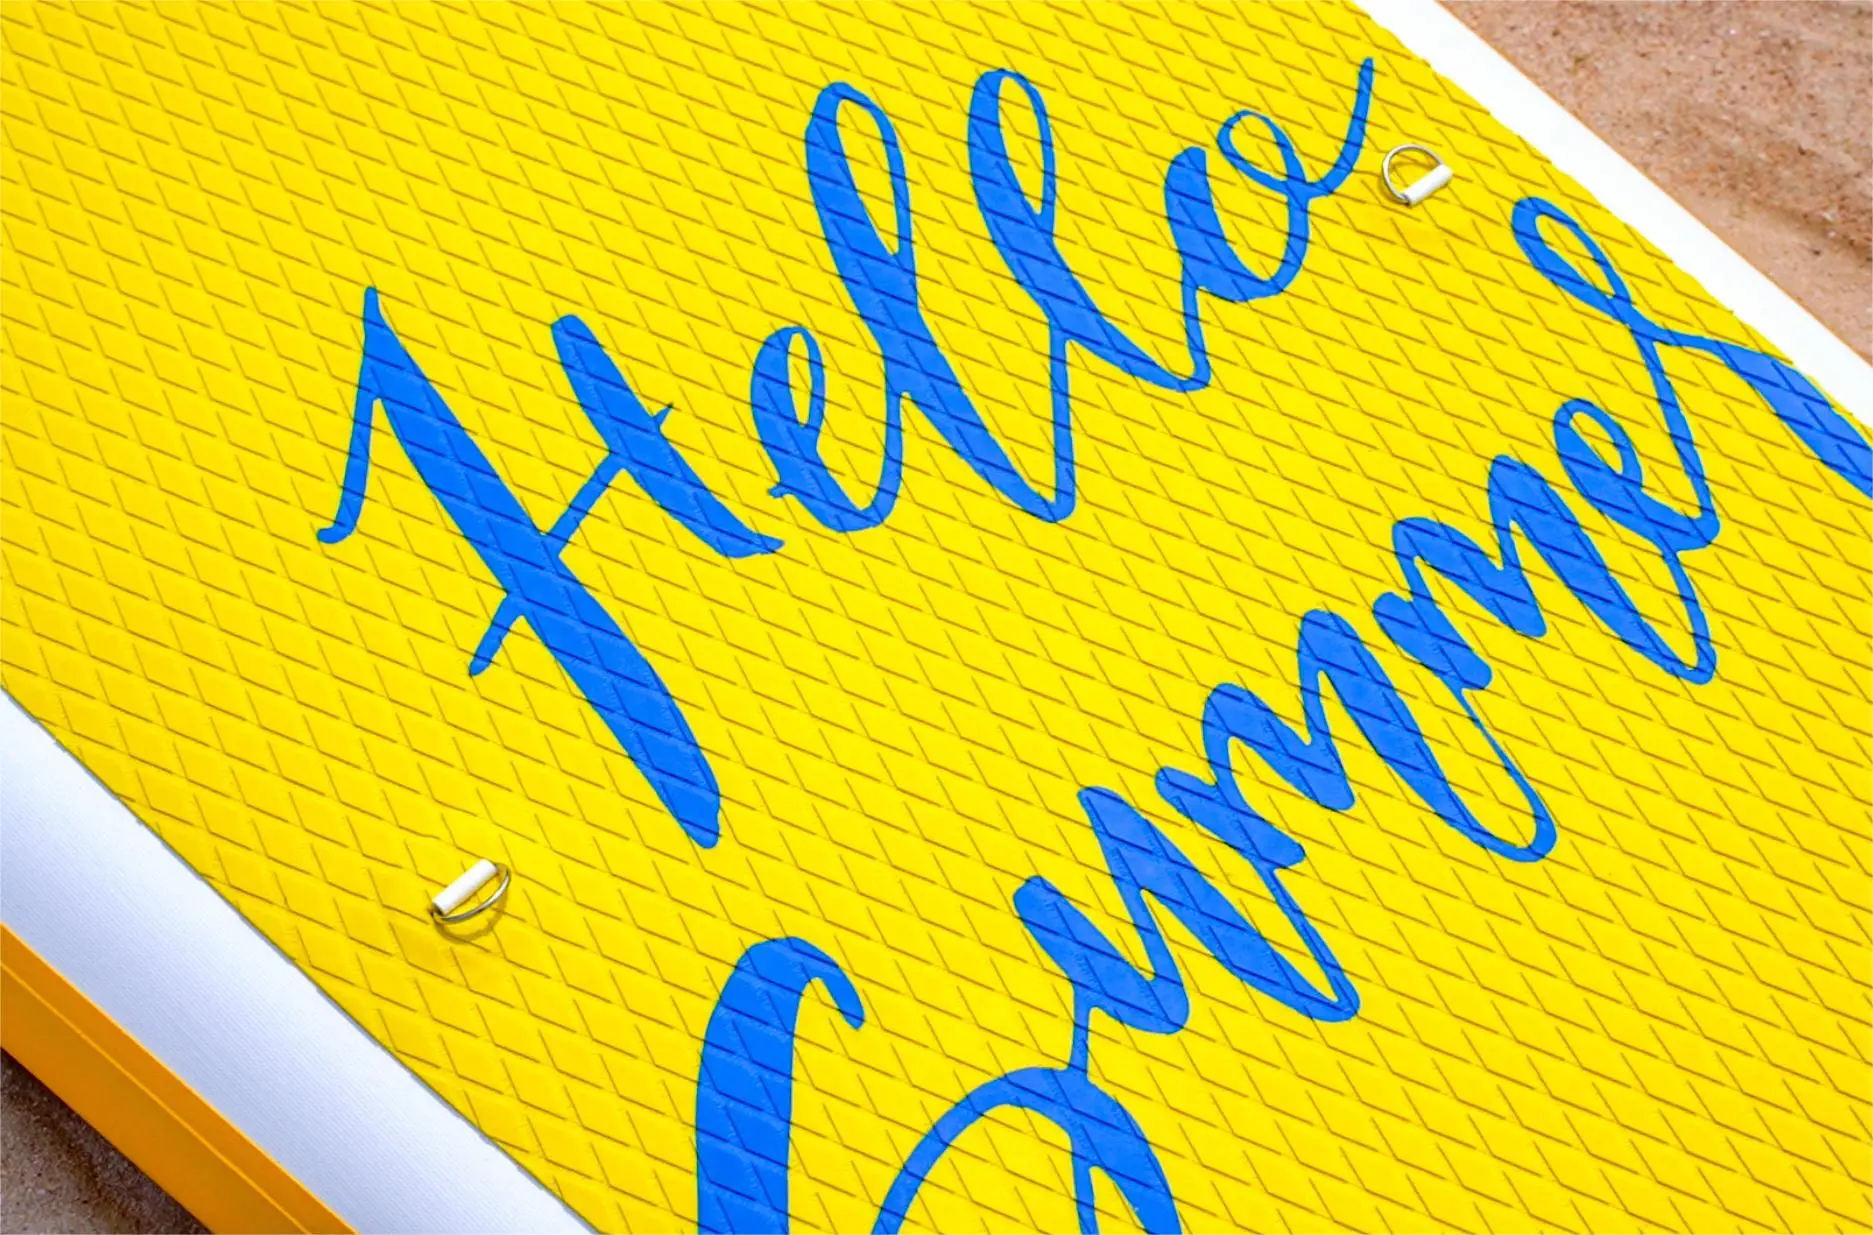 Hello
Summer